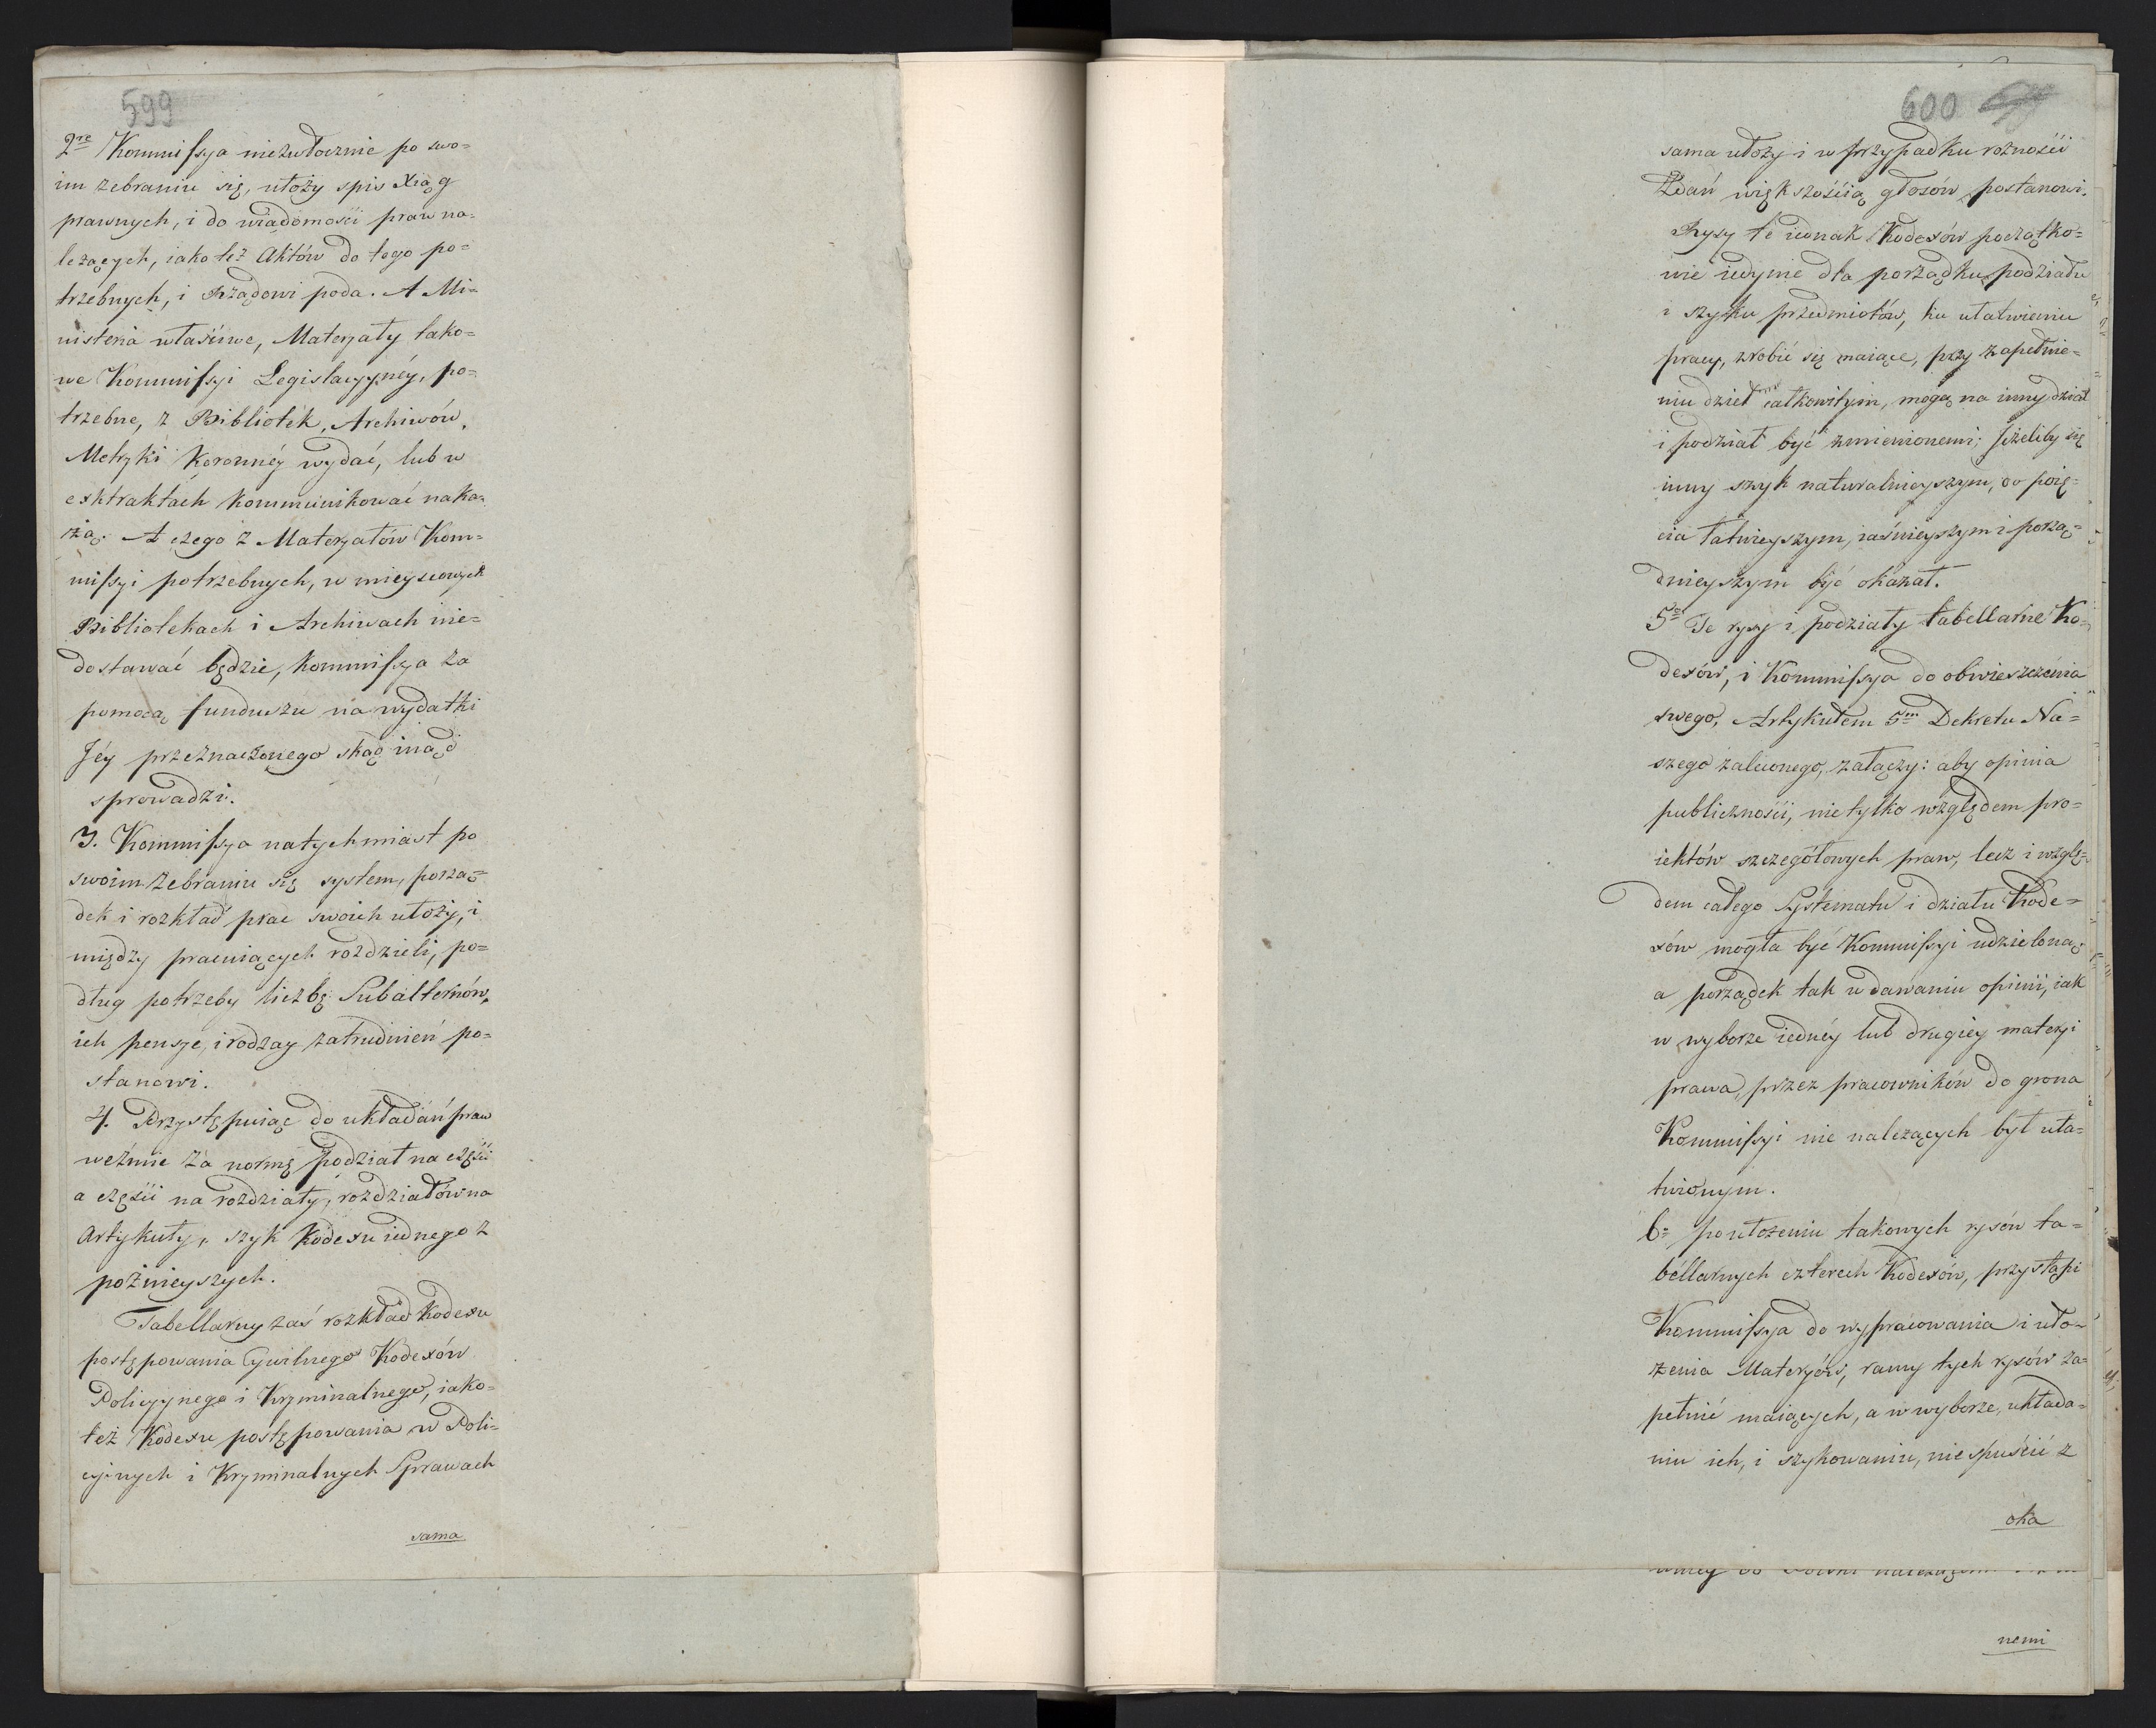 599
2re Kommissya niezwłocznie po swo=
im zebraniu się, ułoży spis Xiąg
prawnych, i do wiadomości praw na=
leżących, iako też Aktów do tego po=
trzebnych, i Rządowi poda. A Mi=
nisteria właściwe, Materyały tako=
we Kommissyi Legislacyyney, po=
trzebne, z Bibliotek, Archiwów,
Metryki Koronney wydać, lub w
exktraktach kommunikować naka=
żą. A czego z Materyałów Kom=
missyi potrzebnych, w mieyscowych
Bibliotekach i Archiwach nie=
dostawać będzie, Kommissya za
pomocą funduszu na wydatki
Jéy przeznaczonego skąd inąd
sprowadzi.
3. Kommissya natychmiast po
swoim zebraniu się system, porzą=
dek i rozkład prac swoich ułoży, i
między pracuiących rozdzieli, po=
dług potrzeby liczbę Subalternów,
ich pensye, i rodzay zatrudnień po=
stanowi.
4. Przystępuiąc do układań praw
weźmie za normę podział na części
a części na rozdziały, rozdziałów na
Artykuły, szyk Kodexu iednego z
poźnieyszych.
Tabellarny zaś rozkład Kodexu
postępowania Cywilnego Kodexów
Policyynego i Kryminalnego, iako=
też Kodexu postępowania w Poli=
cyinych i Kryminalnych Sprawach
sama
600
sama ułoży i w przypadku rożności
Zdań większością głosów postanowi.
Rysy te iednak Kodexów początko=
wie iedynie dla porządku, podziału
i szyku przedmiotów, ku ułatwieniu
pracy, zrobić się maiące, przy zapełnie=
niu dzieł całkowitym, mogą na inny dział
i podział być zmienionemi; Jeżeliby się
inny szyk naturalnieyszym, do poię=
cia łatwieyszym, iaśnieyszym i porzą=
dnieyszym być okazał.
5te Te rysy i podziały tabellarne Ko=
dexów, i Kommissya do obwieszczenia
swego, Artykułem 5m Dekretu Na=
szego zaleconego, załączy: aby opinia
publiczności, nie tylko względem pro=
iektów szczegółowych praw, lecz i wzglę=
dem całego Systematu i działu Kode=
xów mogła być Kommissyi udzieloną
a porządek tak w dawaniu opinii, iak
w wyborze iednéy lub drugiey materyi
prawa, przez pracowników do grona
Kommissyi nie należących był uła=
twionym.
6= po ułożeniu takowych rysów ta=
bellarnych czterech Kodexów, przystąpi
Kommissya do wypracowania i uło=
żenia Materyów, ramy tych rysów za=
pełnić maiących, a w wyborze, układa=
niu ich, i szykowaniu, nie spuścić z
oka
nemi